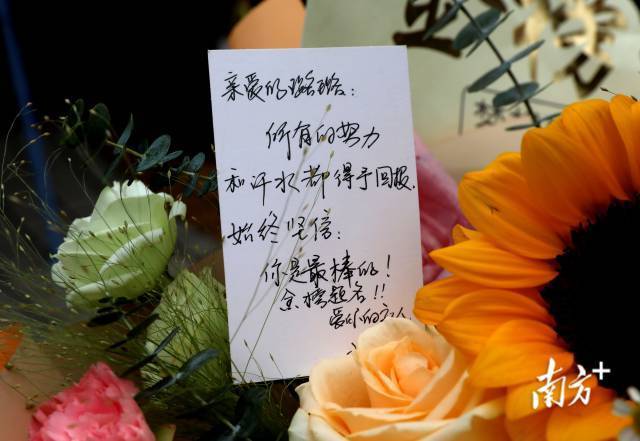 亲爱的璐璐：
所有的努力
和汗水都得于回报.
始终坚信：
你是最棒的！
金榜题名！！
爱你的家人
南方+